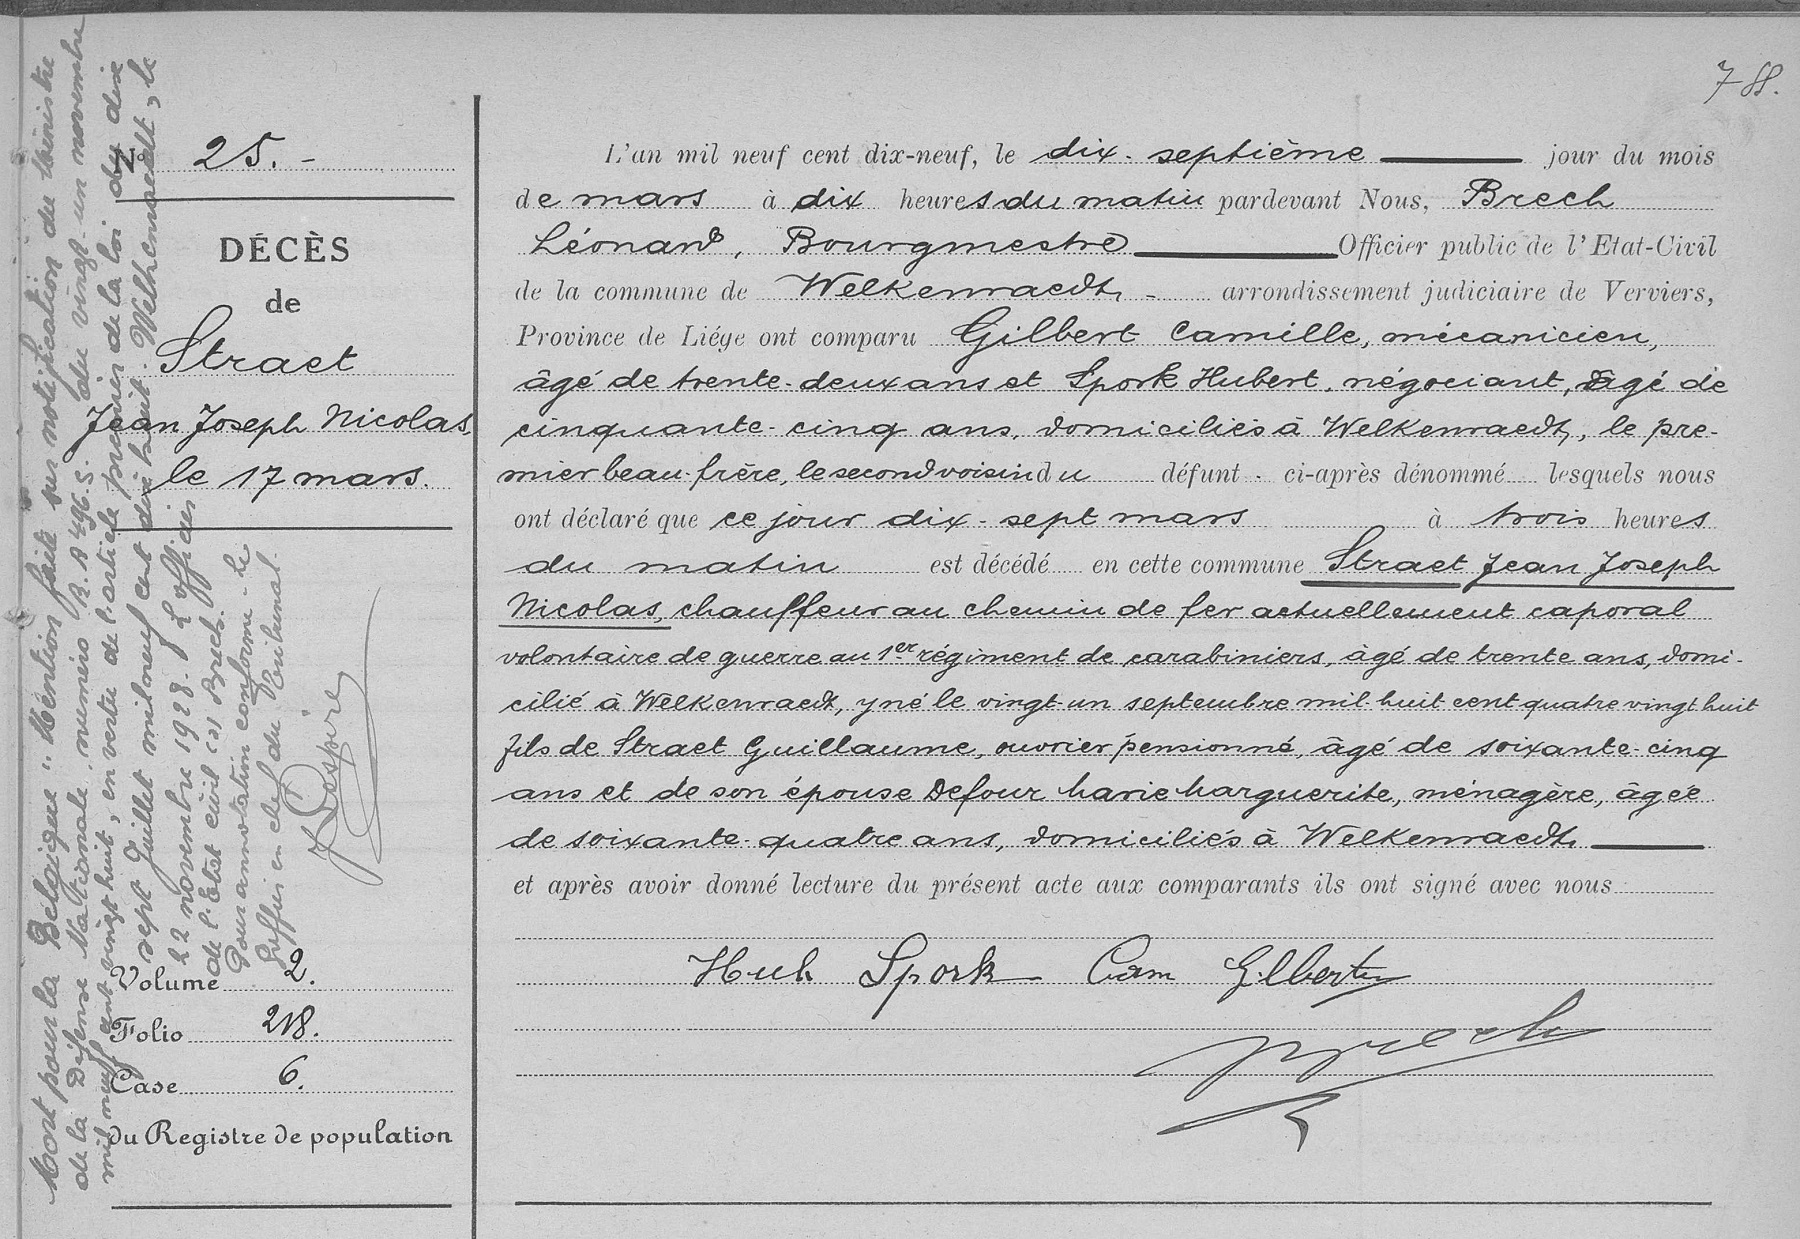 788.
N° 25.-
DÉCÈS
de
Straet
Jean Joseph Nicolas,
le 17 mars.
Volume 2.
Folio 218.
Case 6.
du Registre de population
L'an mil neuf cent dix-neuf, le dix-septième jour du mois
de mars à dix heures du matin pardevant Nous, Brech
Léonard, Bourgmestre Officier public de l'Etat-Civil
de la commune de Welkenraedt - arrondissement judiciaire de Verviers,
Province de Liége ont comparu Gilbert Camille, mécanicien,
âgé de trente-deux ans et Spork Hubert, négociant, âgé de
cinquante-cinq ans, domiciliés à Welkenraedt, le pre-
mier beau-frère, le second voisin du défunt ci-après dénommé lesquels nous
ont déclaré que ce jour dix-sept mars à trois heures
du matin est décédé en cette commune Straet Jean Joseph
Nicolas, chauffeur au chemin de fer actuellement caporal
volontaire de guerre au 1er régiment de carabiniers, âgé de trente ans, domi-
cilié à Welkenraedt, y né le vingt-un septembre mil-huit cent quatre vingt huit
fils de Straet Guillaume, ouvrier pensionné, âgé de soixante-cinq
ans et de son épouse Defour Marie Marguerite, ménagère, âgée
de soixante-quatre ans, domiciliés à Welkenraedt,
et après avoir donné lecture du présent acte aux comparants ils ont signé avec nous
Hub Spork Cam Gilbert
Brech
Mort pour la Belgique": Mention faite sur notification du Ministre
de la Défense Nationale, numéro R.A 496.S. du vingt-un novembre
mil neuf cent vingt huit, en vertu de l'article premier de la loi du dix
sept Juillet mil neuf cent dix huit. Welkenraedt, le
22 novembre 1928. L'officier
de l'Etat civil (s) Brech.
Pour annotation conforme - Le
Greffier en chef du Tribunal.